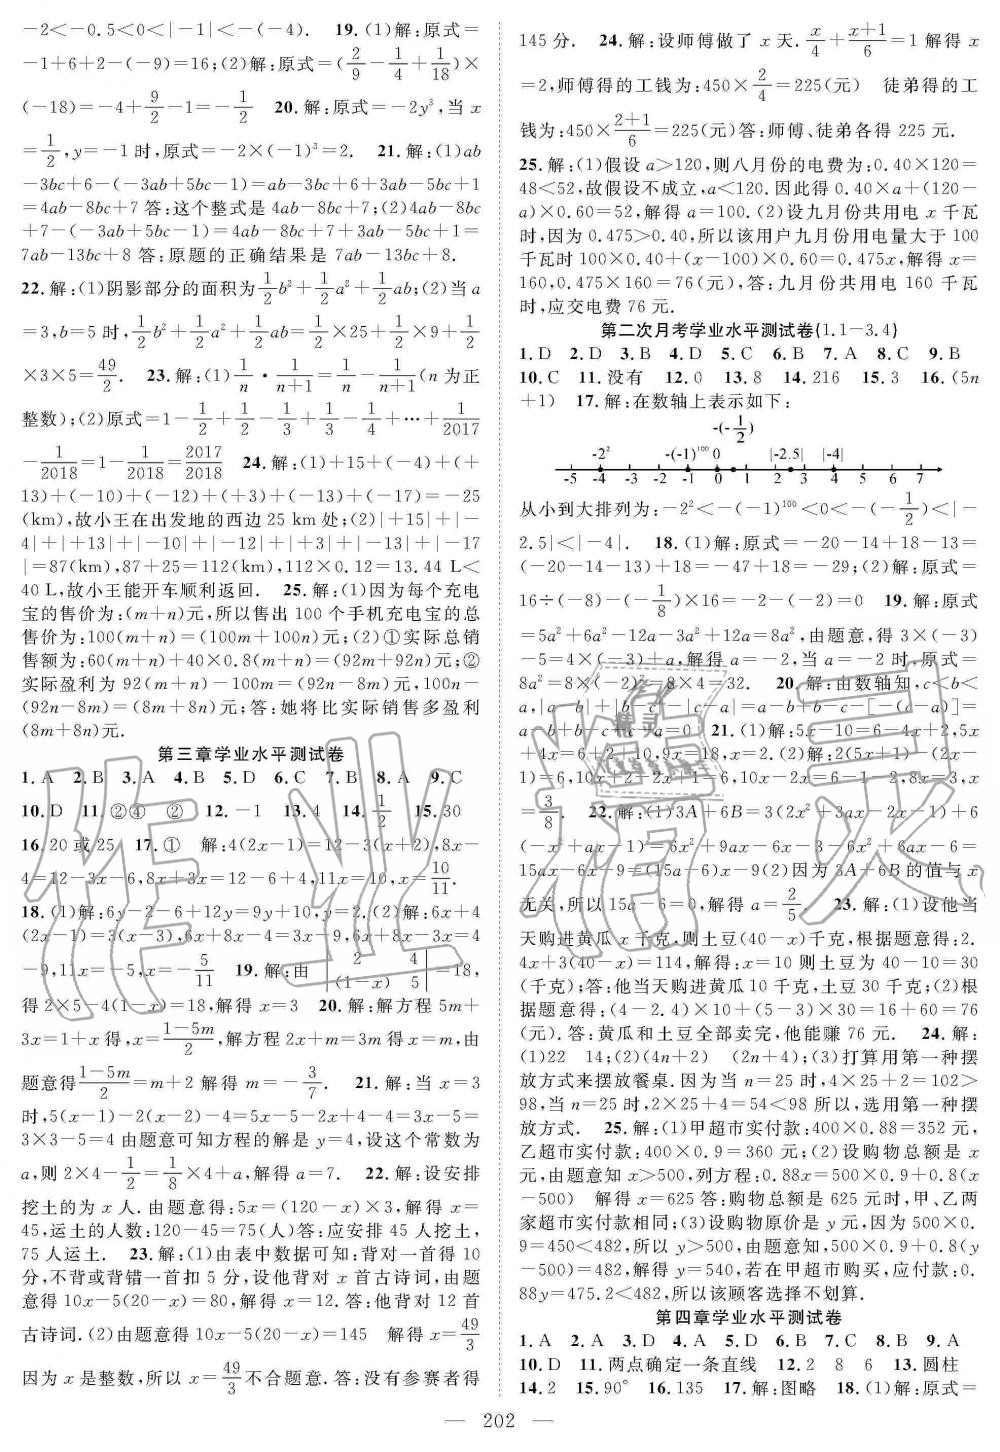 -2<-0.5<0<|-1|<-(-4). 19.(1)解:原式=
-1+6+2-(-9)=16;(2)解:原式=(2/9-1/4+1/18)×
(-18)=-4+9/2-1=-1/2 20.解:原式=-2y³,当x
=1/2,y=-1时,原式=-2×(-1)³=2. 21.解:(1)ab
-3bc+6-(-3ab+5bc-1)=ab-3bc+6+3ab-5bc+1
=4ab-8bc+7答:这个整式是4ab-8bc+7;(2)4ab-8bc
+7-(-3ab+5bc-1)=4ab-8bc+7+3ab-5bc+1=
7ab-13bc+8答:原题的正确结果是7ab-13bc+8.
22.解:(1)阴影部分的面积为1/2b²+1/2a²+1/2ab;(2)当a
=3,b=5时,1/2b²+1/2a²+1/2ab=1/2×25+1/2×9+1/2
×3×5=49/2. 23.解:(1)1/n·1/(n+1)=1/n-1/(n+1)(n为正
整数);(2)原式=1-1/2+1/2-1/3+1/3-1/4+…+1/2017
-1/2018=1-1/2018=2017/2018 24.解:(1)+15+(-4)+(+
13)+(-10)+(-12)+(+3)+(-13)+(-17)=-25
(km),故小王在出发地的西边25 km处;(2)|+15|+|-
4|+|+13|+|-10|+|-12|+|+3|+|-13|+|-17
|=87(km),87+25=112(km),112×0.12=13.44 L<
40 L,故小王能开车顺利返回. 25.解:(1)因为每个充电
宝的售价为:(m+n)元,所以售出100个手机充电宝的总
售价为:100(m+n)=(100m+100n)元;(2)①实际总销
售额为:60(m+n)+40×0.8(m+n)=(92m+92n)元;②
实际盈利为92(m+n)-100m=(92n-8m)元,100n-
(92n-8m)=(8m+8n)元;答:她将比实际销售多盈利
(8m+8n)元.
第三章学业水平测试卷
1.A 2.B 3.A 4.B 5.D 6.C 7.B 8.A 9.C
10.D 11.②④ ② 12.-1 13.4 14.1/2 15.30
16.20或25 17.① 解:4(2x-1)=12-3(x+2),8x-
4=12-3x-6,8x+3x=12-6+4,11x=10,x=10/11.
18.(1)解:6y-2-6+12y=9y+10,y=2.(2)解:6x+4
(2x-1)=3(x-3),6x+8x-4=3x-9,6x+8x-3x=4
-9,11x=-5,x=-5/11 19.解:由|2 4 (1-x) 5|=18,
得2×5-4(1-x)=18,解得x=3 20.解:解方程5m+
3x=1+x得,x=(1-5m)/2,解方程2x+m=3m得x=m,由
题意得(1-5m)/2=m+2解得m=-3/7. 21.解:当x=3
时,5(x-1)-2(x-2)-4=5x-5-2x+4-4=3x-5=
3×3-5=4由题意可知方程的解是y=4,设这个常数为
a,则2×4-1/2=1/8×4+a,解得a=7. 22.解:设安排
挖土的为x人.由题意得:5x=(120-x)×3,解得x=
45,运土的人数:120-45=75(人)答:应安排45人挖土,
75人运土. 23.解:(1)由表中数据可知:背对一首得10
分,不背或背错一首扣5分,设他背对x首古诗词,由题
意得10x-5(20-x)=80,解得x=12.答:他背对12首
古诗词.(2)由题意得10x-5(20-x)=145 解得x=49/3
因为x是整数,所以x=49/3不合题意.答:没有参赛者得
145分. 24.解:设师傅做了x天.x/4+(x+1)/6=1解得x
=2,师傅得的工钱为:450×2/4=225(元) 徒弟得的工
钱为:450×(2+1)/6=225(元)答:师傅、徒弟各得225元.
25.解:(1)假设a>120,则八月份的电费为:0.40×120=
48<52,故假设不成立,a<120.因此得0.40×a+(120-
a)×0.60=52,解得a=100.(2)设九月份共用电x千瓦
时,因为0.475>0.40,所以该用户九月份用电量大于100
千瓦时100×0.40+(x-100)×0.60=0.475x,解得x=
160,0.475×160=76(元),答:九月份共用电160千瓦
时,应交电费76元.
第二次月考学业水平测试卷(1.1-3.4)
1.D 2.D 3.B 4.D 5.C 6.B 7.A 8.C 9.B
10.C 11.没有 12.0 13.8 14.216 15.3 16.(5n
+1) 17.解:在数轴上表示如下:
-(-1/2)
-2² -(-1)¹⁰⁰ 0 |-2.5| |-4|
-5 -4 -3 -2 -1 0 1 2 3 4 5 6 7
从小到大排列为:-2²<-(-1)¹⁰⁰<0<-(-1/2)<|-
2.5|<|-4|. 18.(1)解:原式=-20-14+18-13=
(-20-14-13)+18=-47+18=-29;(2)解:原式=
16÷(-8)-(-1/8)×16=-2-(-2)=0 19.解:原式
=5a²+6a²-12a-3a²+12a=8a²,由题意,得3×(-3)
-5=4×(-3)+a,解得a=-2,当a=-2时,原式=
8a²=8×(-2)²=8×4=32. 20.解:由数轴知,c<b<
a,|a-b|+|b-c|-|c-a|=a-b+b-c-[-(c-a)]=
a-b+b-c+c-a=0 21.(1)解:5x-10=6-4x+2,5x
+4x=6+2+10,9x=18,x=2.(2)解:2(5x+1)-(2x-
1)=6,10x+2-2x+1=6,10x-2x=6-1-2,8x=3,x
=3/8. 22.解:(1)3A+6B=3(2x²+3ax-2x-1)+6
(-x²+ax-1)=6x²+9ax-6x-3-6x²+6ax-6=
15ax-6x-9=(15a-6)x-9(2)因为3A+6B的值与x
无关,所以15a-6=0,解得a=2/5. 23.解:(1)设他当
天购进黄瓜x千克,则土豆(40-x)千克,根据题意得:2.
4x+3(40-x)=114,解得:x=10则土豆为40-10=30
(千克);答:他当天购进黄瓜10千克,土豆30千克;(2)根
据题意得:(4-2.4)×10+(5-3)×30=16+60=76
(元).答:黄瓜和土豆全部卖完,他能赚76元. 24.解:
(1)22 14;(2)(4n+2) (2n+4);(3)打算用第一种摆
放方式来摆放餐桌.因为当n=25时,4×25+2=102>
98,当n=25时,2×25+4=54<98所以,选用第一种摆
放方式. 25.解:(1)甲超市实付款:400×0.88=352元,
乙超市实付款:400×0.9=360元;(2)设购物总额是x
元,由题意知x>500,列方程:0.88x=500×0.9+0.8(x
-500) 解得x=625答:购物总额是625元时,甲、乙两
家超市实付款相同;(3)设购物原价是y元,因为500×0.
9=450<482,所以y>500,由题意知,500×0.9+0.8(y
-500)=482,解得y=540,若在甲超市购买,应付款:0.
88y=475.2<482,所以该顾客选择不划算.
第四章学业水平测试卷
1.A 2.A 3.D 4.A 5.D 6.B 7.C 8.B 9.A
10.D 11.两点确定一条直线 12.2 8 6 13.圆柱
14.2 15.90° 16.135 17.解:图略 18.(1)解:原式=
— 202 —
作业精灵